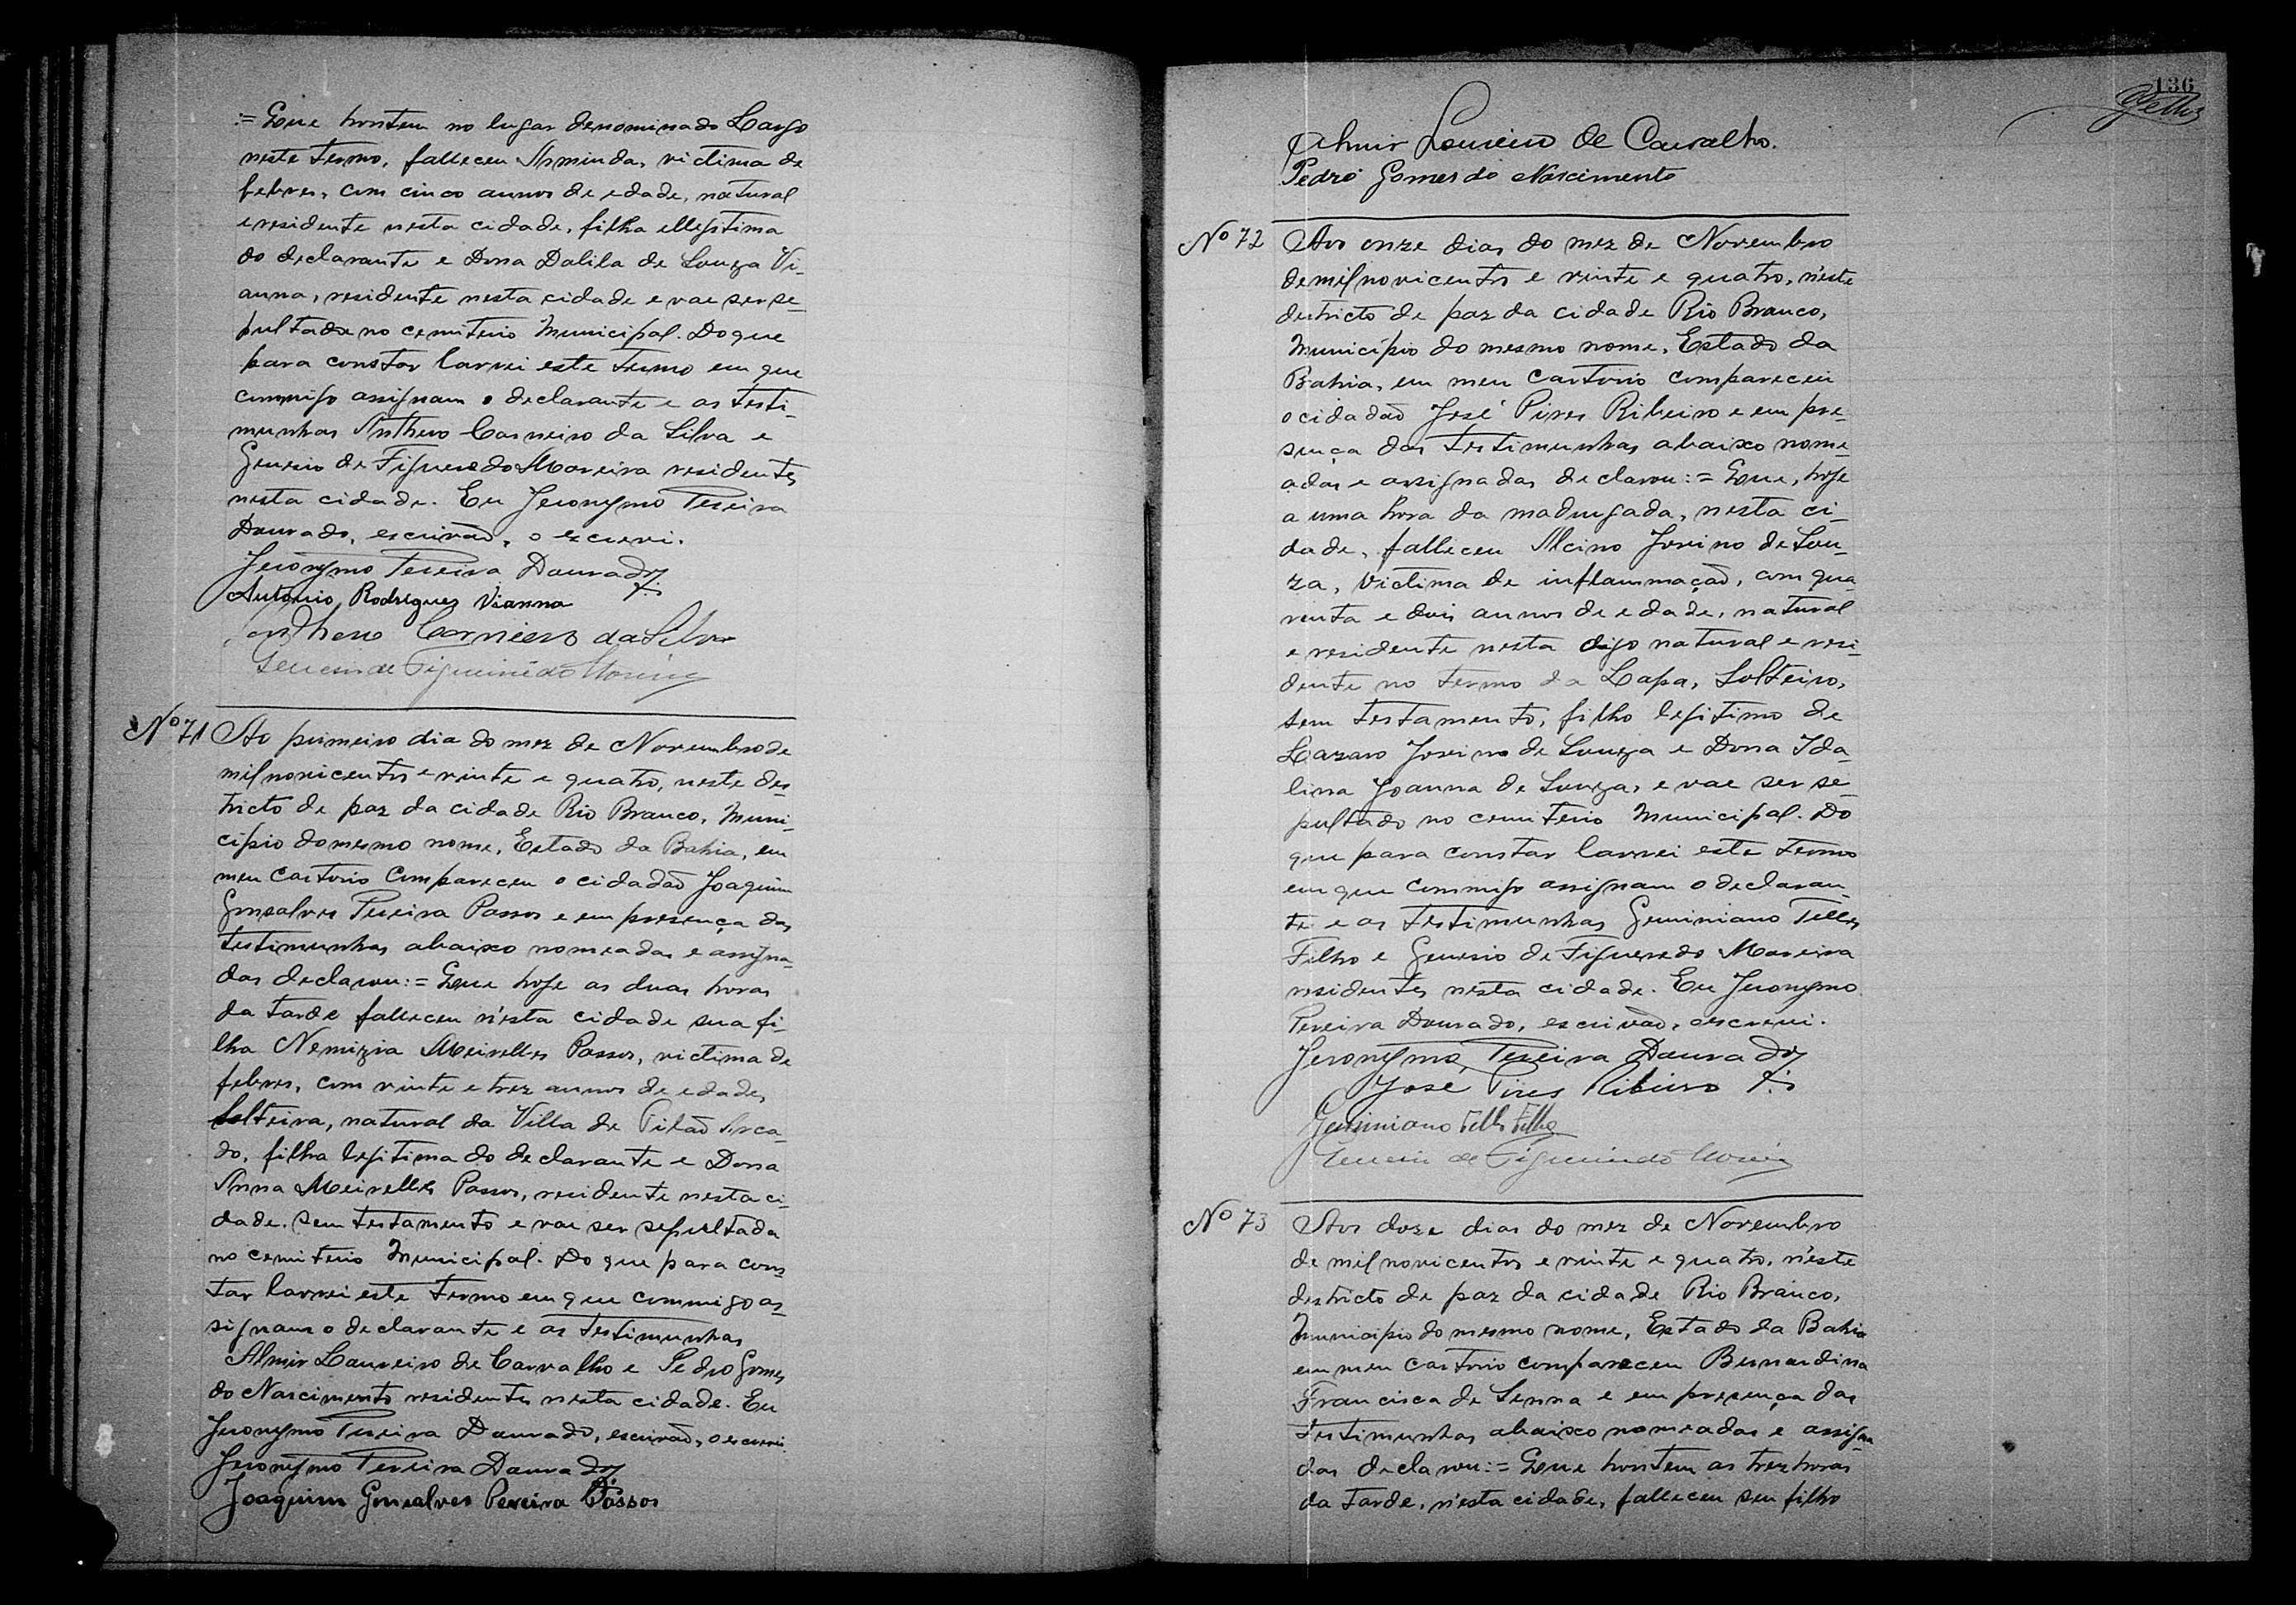 := Que hontem no lugar denominado Largo
neste termo, falleceu Arminda, victima de
febres, com cinco annos de edade, natural
e residente nesta cidade, filha ellegitima
do declarante e Dona Dalila de Souza Vi-
anna, residente nesta cidade e vae ser se-
pultada no cemiterio Municipal. Do que
para constar lavrei este termo em que
commigo assignam o declarante e as testi-
munhas Anthero Carneiro da Silva e
Genesio de Figueredo Moreira residentes
nesta cidade. Eu Jeronymo Pereira
Dourado, escrivão, o escrevi.
Jeronymo Pereira Dourado
Antonio Rodrigues Vianna
Anthero Carneiro da Silva
Genesio de Figueirêdo Moreira
Nº 71 Ao primeiro dia do mez de Novembro de
mil novicentos e vinte e quatro, neste des-
tricto de paz da cidade Rio Branco, Muni-
cipio do mesmo nome, Estado da Bahia, em
meu cartorio compareceu o cidadão Joaquim
Gonsalves Pereira Passos e em presença das
testimunhas abaixo nomeadas e assigna-
das declarou: = Que hoje as duas horas
da tarde falleceu n'esta cidade sua fi-
lha Nemizia Meirelles Passos, victima de
febres, com vinte e trez annos de edade,
solteira, natural da Villa de Pilão Arca-
do, filha legitima do declarante e Dona
Anna Meirelles Passos, residente nesta ci-
dade, sem testamento e vae ser sepultada
no cemiterio Municipal. Do que para cons-
tar lavrei este termo em que commigo as-
signam o declarante e as testimunhas
Almir Loureiro de Carvalho e Pedro Gomes
do Nascimento residentes nesta cidade. Eu
Jeronymo Pereira Dourado, escrivão, o escrevi.
Jeronymo Pereira Dourado
Joaquim Gonsalves Pereira Passos
136
Telles
Almir Loureiro de Carvalho.
Pedro Gomes do Nascimento
Nº 72 Aos onze dias do mez de Novembro
de mil novicentos e vinte e quatro, n'este
destricto de paz da cidade Rio Branco,
Municipio do mesmo nome, Estado da
Bahia, em meu cartorio compareceu
o cidadão José Pires Ribeiro e em pre-
sença das testimunhas abaixo nome-
adas e assignadas declarou: = Que, hoje
a uma hora da madrugada, nesta ci-
dade, falleceu Alcino Jovino de Sou-
za, victima de inflammação, com qua-
renta e dois annos de edade, natural
e residente nesta digo natural e resi-
dente no termo da Lapa, Solteiro,
sem testamento, filho legitimo de
Lazaro Jovino de Souza e Dona Ida-
lina Joanna de Souza, e vae ser se-
pultado no cemiterio Municipal. Do
que para constar lavrei este termo
em que commigo assignam o declaran-
te e as testimunhas Geminiano Telles
Filho e Genesio de Figueredo Moreira
residentes nesta cidade. Eu Jeronymo
Pereira Dourado, escrivão, o escrevi.
Jeronymo Pereira Dourado
José Pires Ribeiro
Geminiano Telles Filho
Genesio de Figueirêdo Moreira
Nº 73 Aos doze dias do mez de Novembro
de mil novicentos e vinte e quatro, n'este
destricto de paz da cidade Rio Branco,
Municipio do mesmo nome, Estado da Bahia
em meu cartorio compareceu Bernardina
Francisca de Senna e em presença das
testimunhas abaixo nomeadas e assigna-
das declarou: = Que hontem as trez horas
da tarde, n'esta cidade, falleceu seu filho